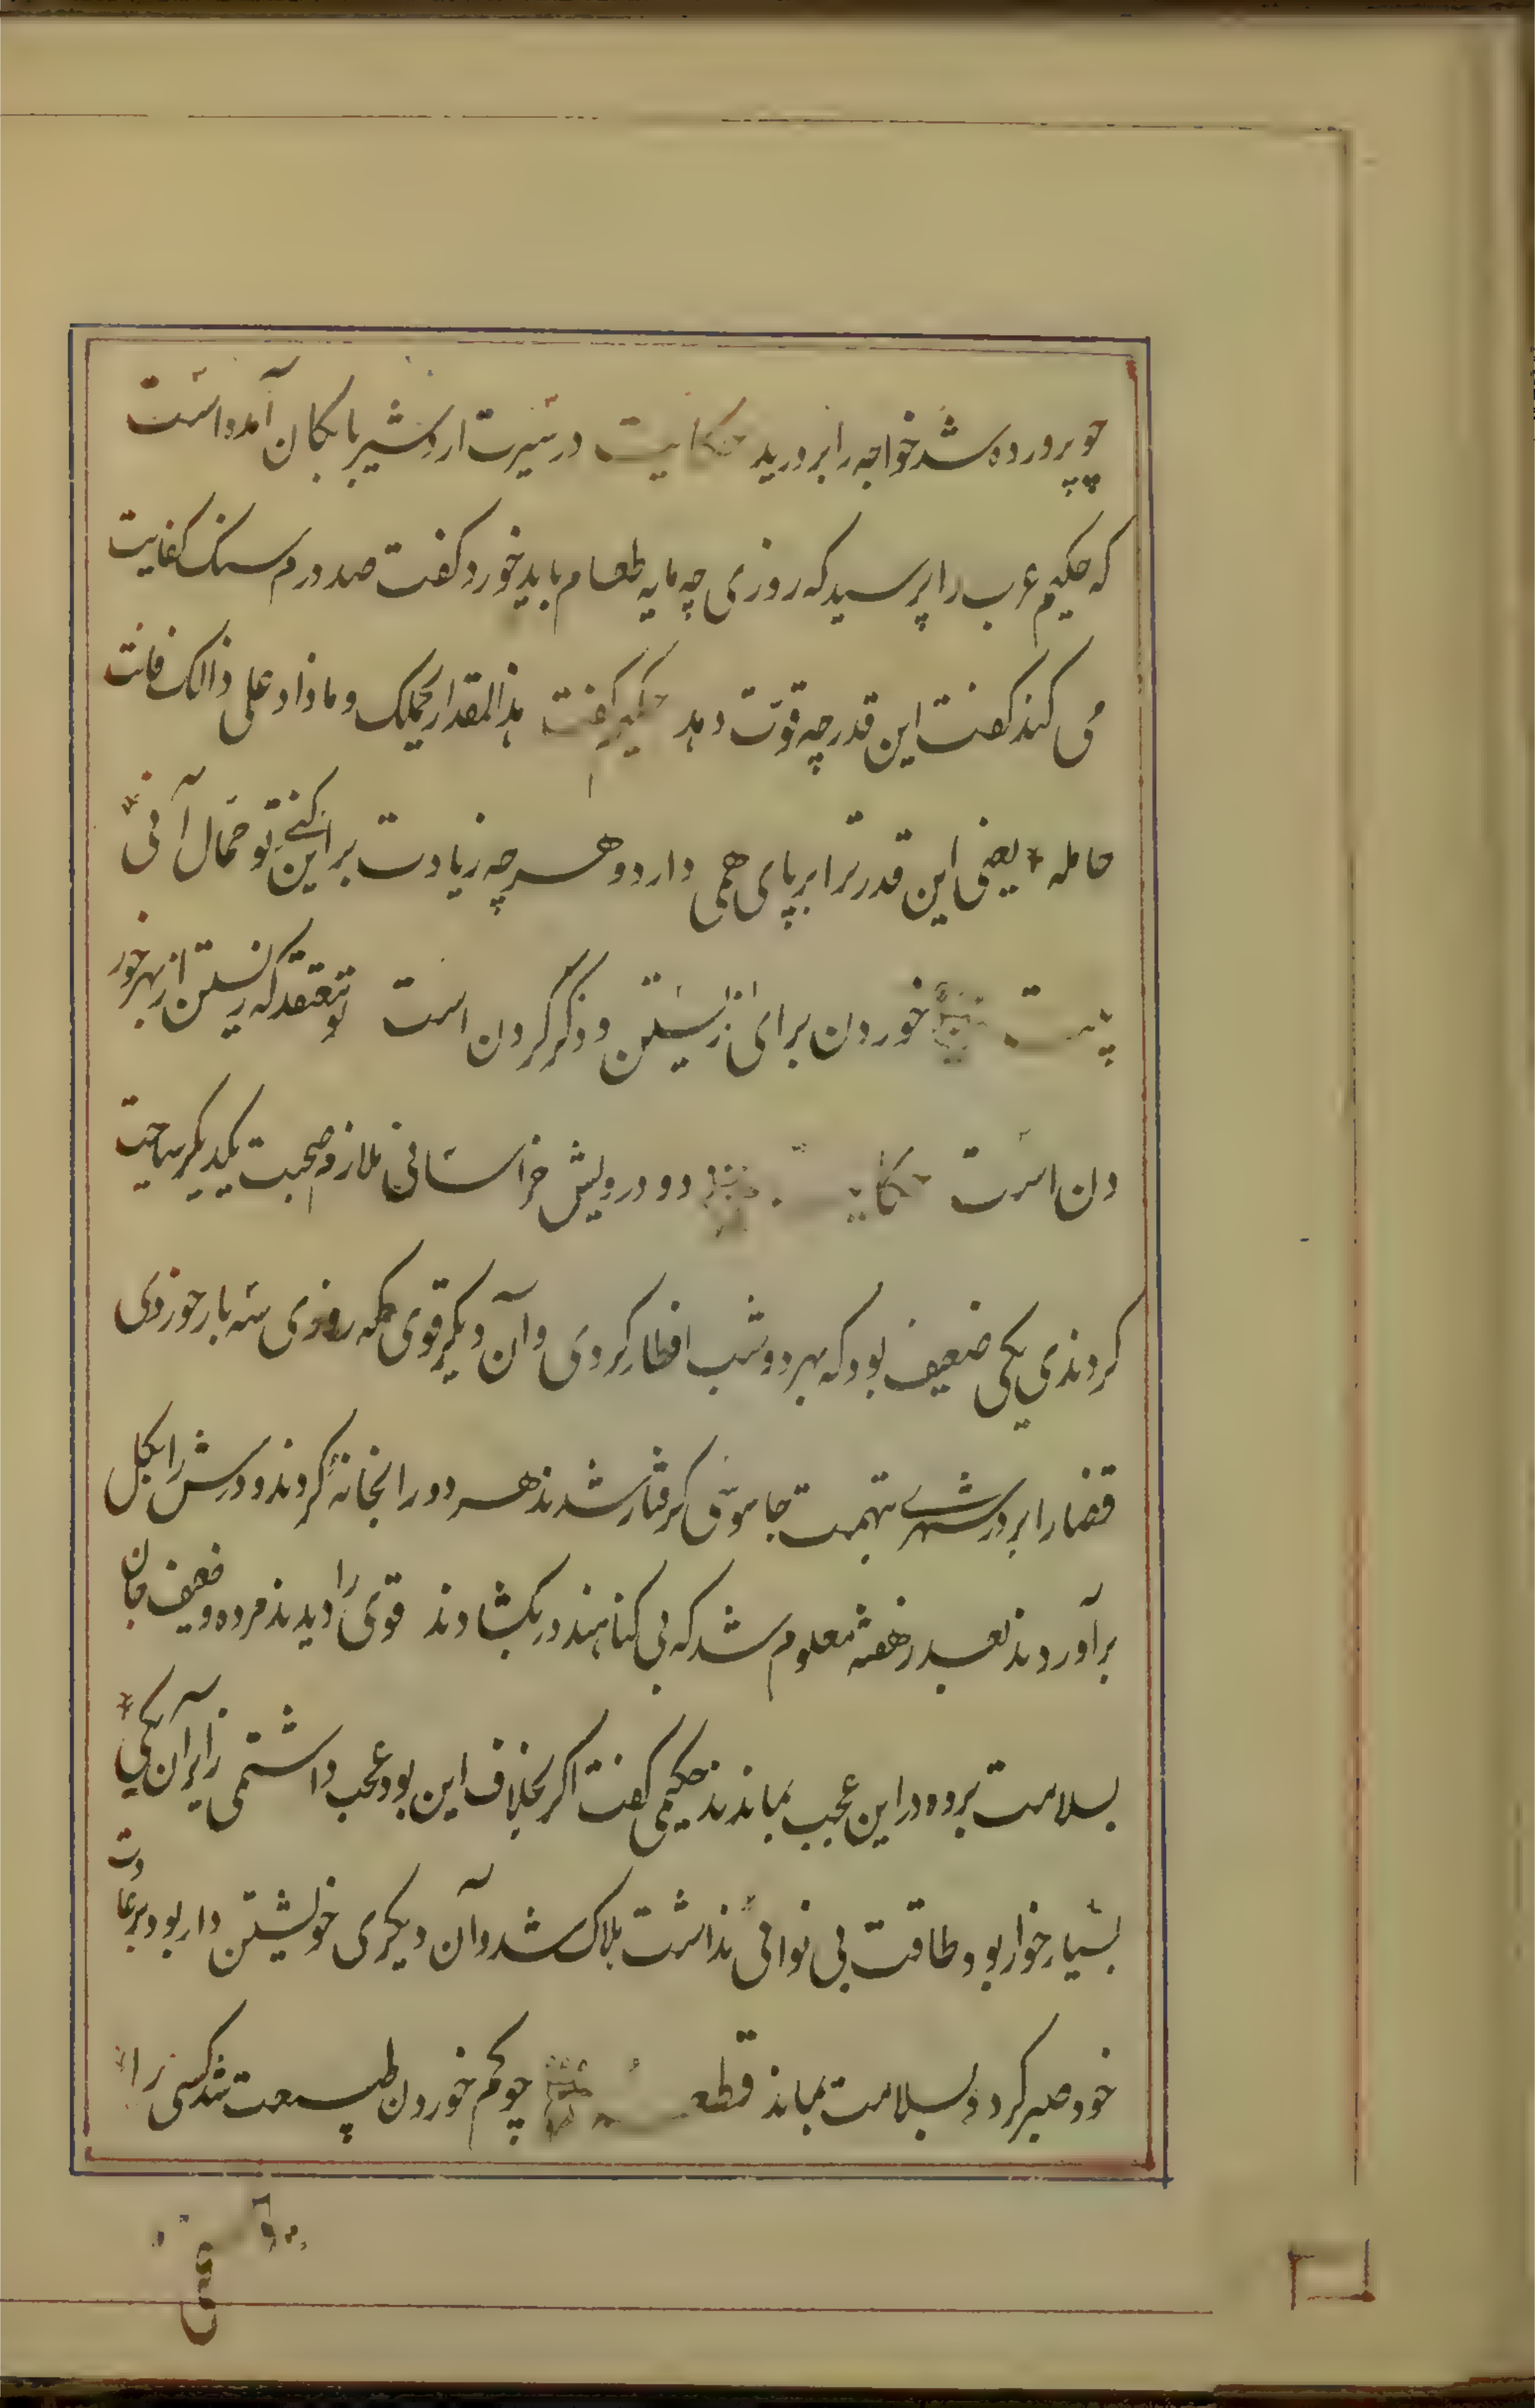 چو پرورده شد خواجه را بر درید حکایت در سیرت اردشیر بابکان آمده است
که حکیم عرب را پرسید که روزی چه مایه طعام باید خورد کفت صد درم سنک کفایت
می کند کفت این قدر چه قوّت دهد حکیم کفت هذا المقدار یحملک و ماذاد علی ذالک فانت
حامله یعنی این قدر ترا بر پای همی دارد و هرچه زیادت بر این کنی تو حمّال آنی
بیت خوردن برای زیستن و ذکر کردن است تو معتقد که زیستن از بهر خور
دن است حکایت دو درویش خراسانی ملازم صحبت یکدیکر سیاحت
کردندی یکی ضعیف بود که بهر دو شب افطار کردی و آن دیکر قوی که روزی سه بار خوردی
قضا را بر در شهری بتهمت جاسوسی کرفتار شدند هر دو را بخانهٔ کردند و درش را بکل
برآوردند بعد از هفته معلوم شد که بی کناهند در بکشادند قوی را دیدند مرده و ضعیف جان
بسلامت برده در این عجب بماندند حکیمی کفت اکر بخلاف این بود عجب داشتمی زیرا آن یکی
بسیار خوار بود طاقت بی نوائی نداشت هلاک شد و آن دیکری خویشتن دار بود بر عادت
خود صبر کرد و بسلامت بماند قطعه چو کم خوردن طبیعت شد کسی را